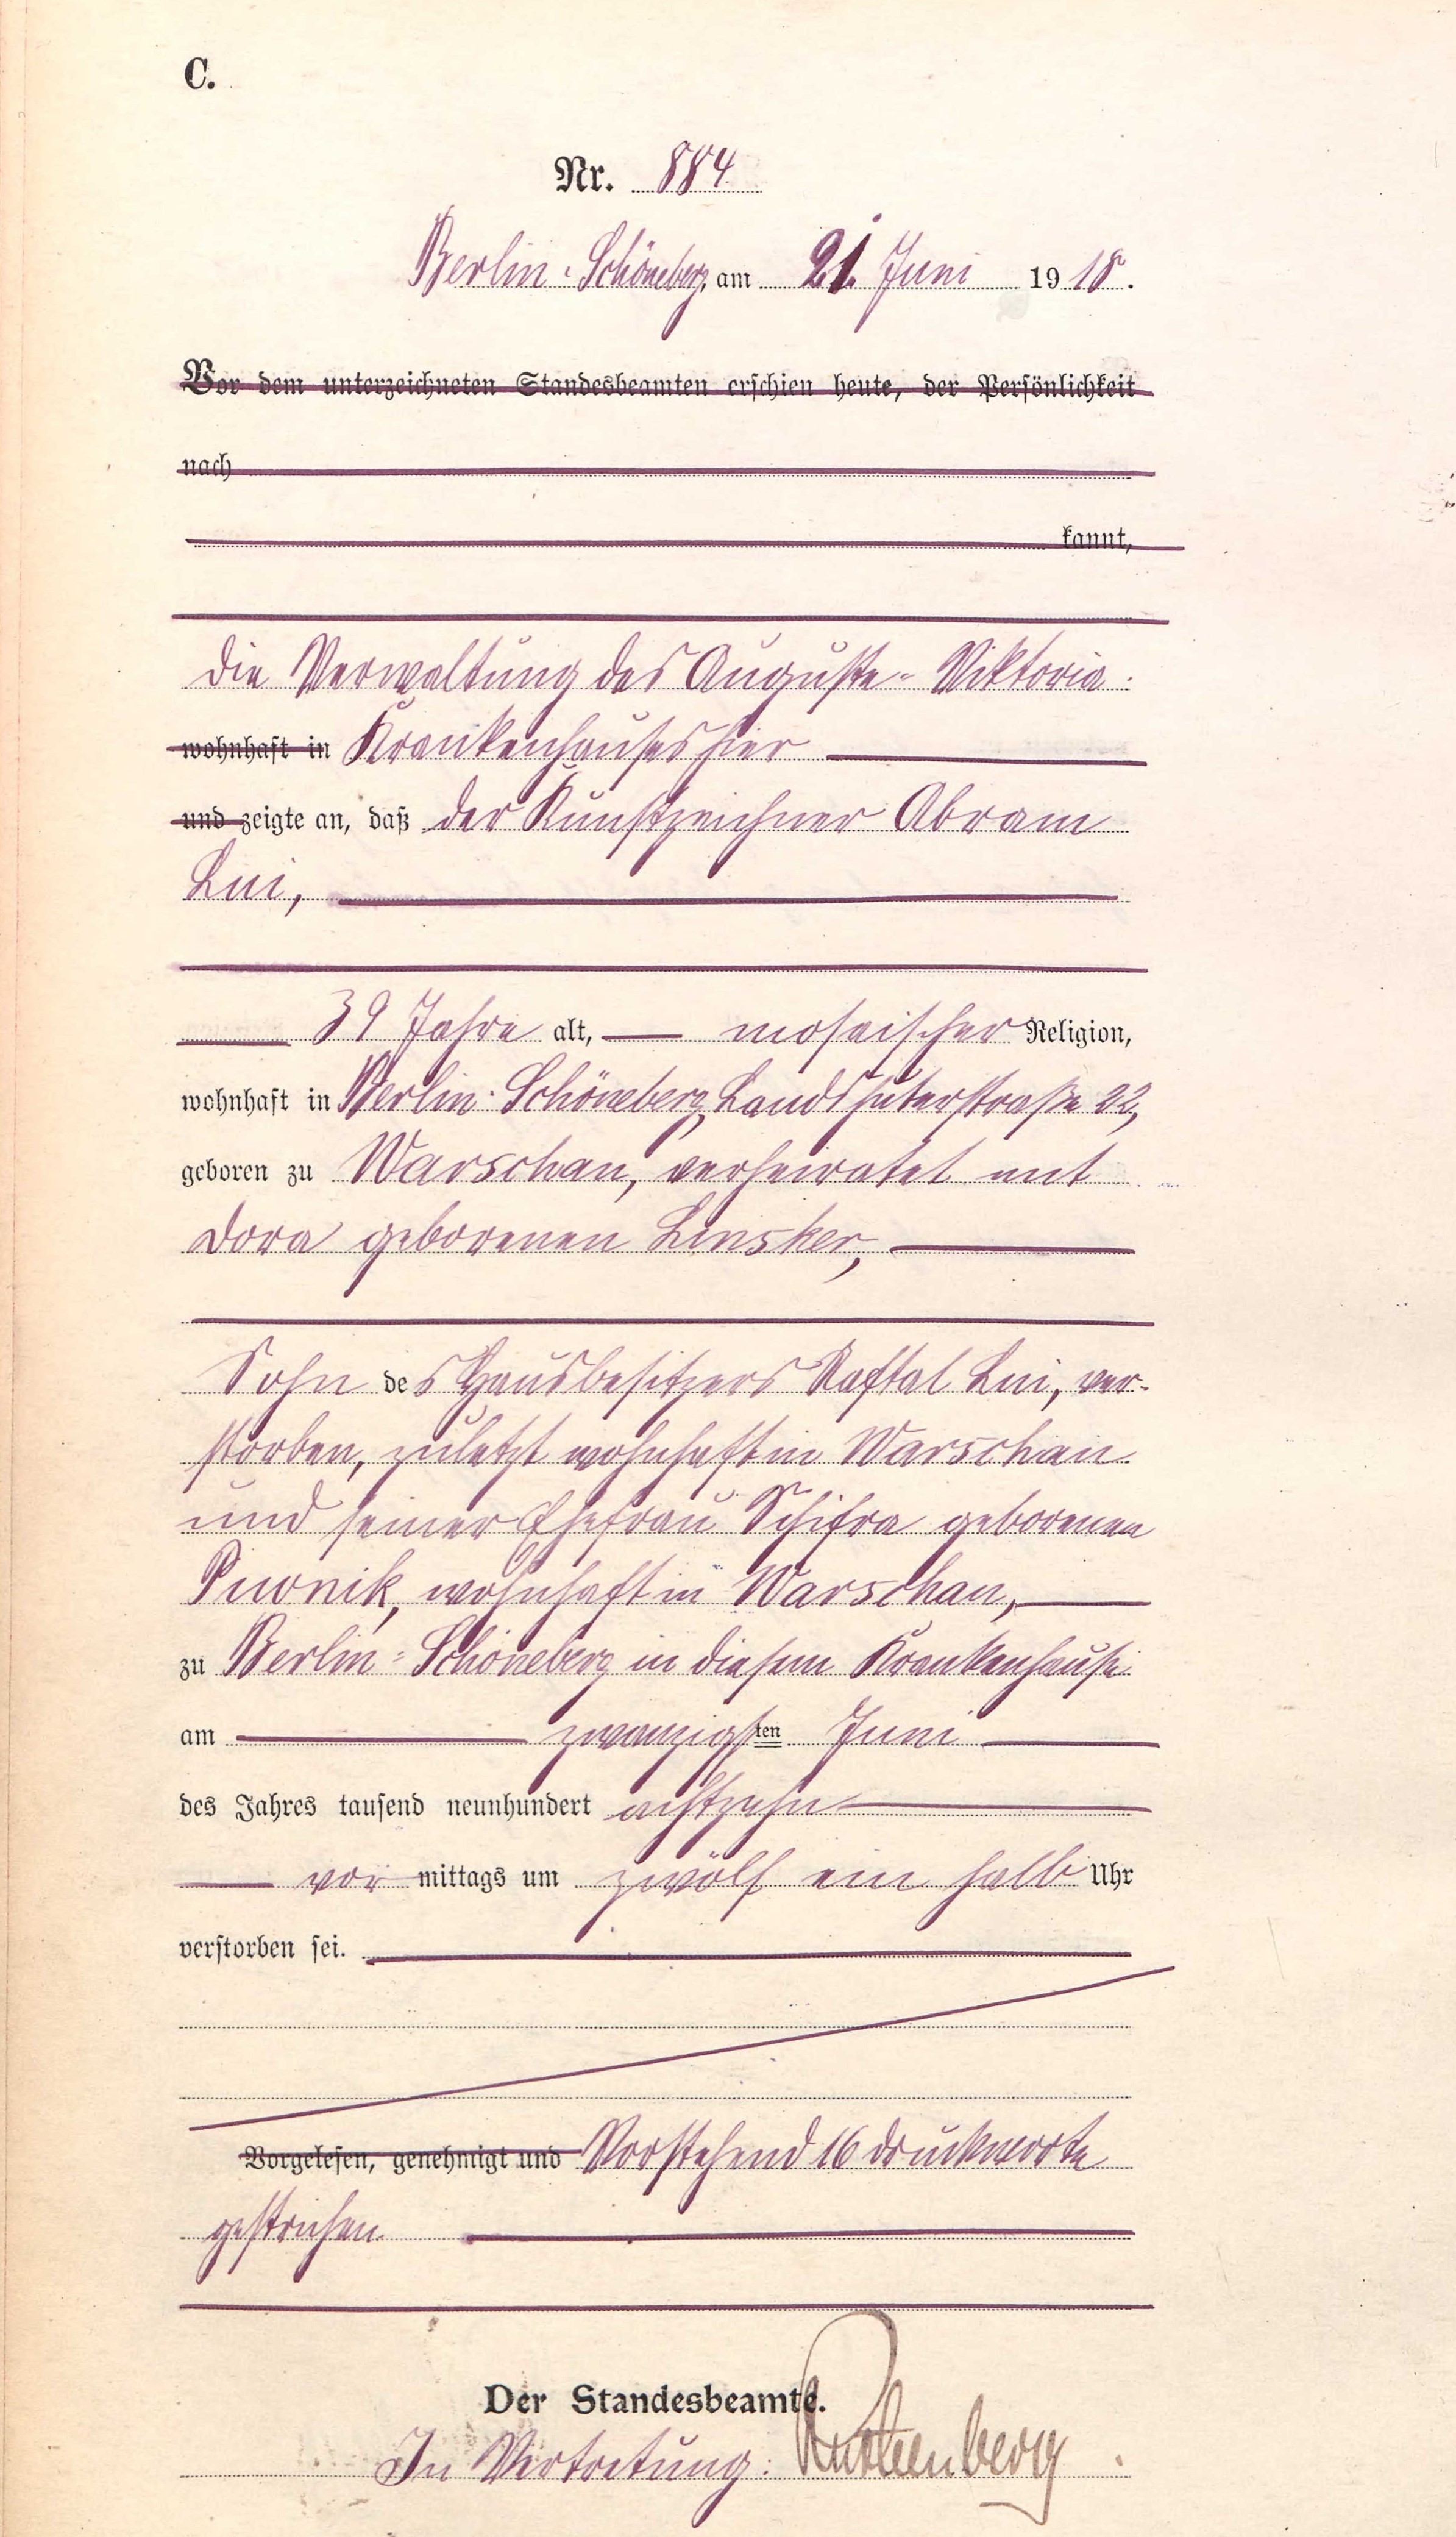 C.
Nr. 884
Berlin-Schöneberg, am 21. Juni 1918.
Vor dem unterzeichneten Standesbeamten erschien heute, der Persönlichkeit
nach
kannt,
die Verwaltung des Auguste-Viktoria-
wohnhaft in Krankenhauses hier
und zeigte an, daß der Kunstzeichner Abram
Lui,
39 Jahre alt, mosaischer Religion,
wohnhaft in Berlin-Schöneberg, Landshuterstraße 22,
geboren zu Warschau, verheiratet mit
Dora geborenen Linsker,
Sohn des Hausbesitzers Naftal Lui, ver-
storben, zuletzt wohnhaft in Warschau
und seiner Ehefrau Schifra geborenen
Piwonik, wohnhaft in Warschau,
zu Berlin-Schöneberg in diesem Krankenhause
am zwanzigsten Juni
des Jahres tausend neunhundert achtzehn
vor mittags um zwölf ein halb Uhr
verstorben sei.
Vorgelesen, genehmigt und Vorstehend 16 Druckworte
gestrichen.
Der Standesbeamte.
In Vertretung: